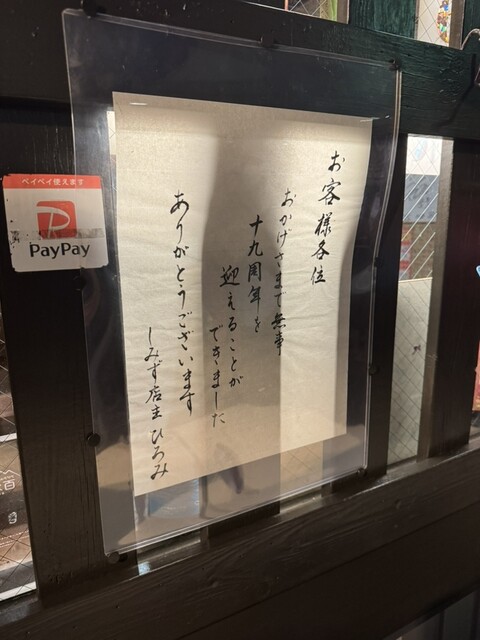 お客様各位
おかげさまで無事
十九周年を
迎えることが
できました
ありがとうございます
しみず店主ひろみ
ペイペイ使えます
PayPay